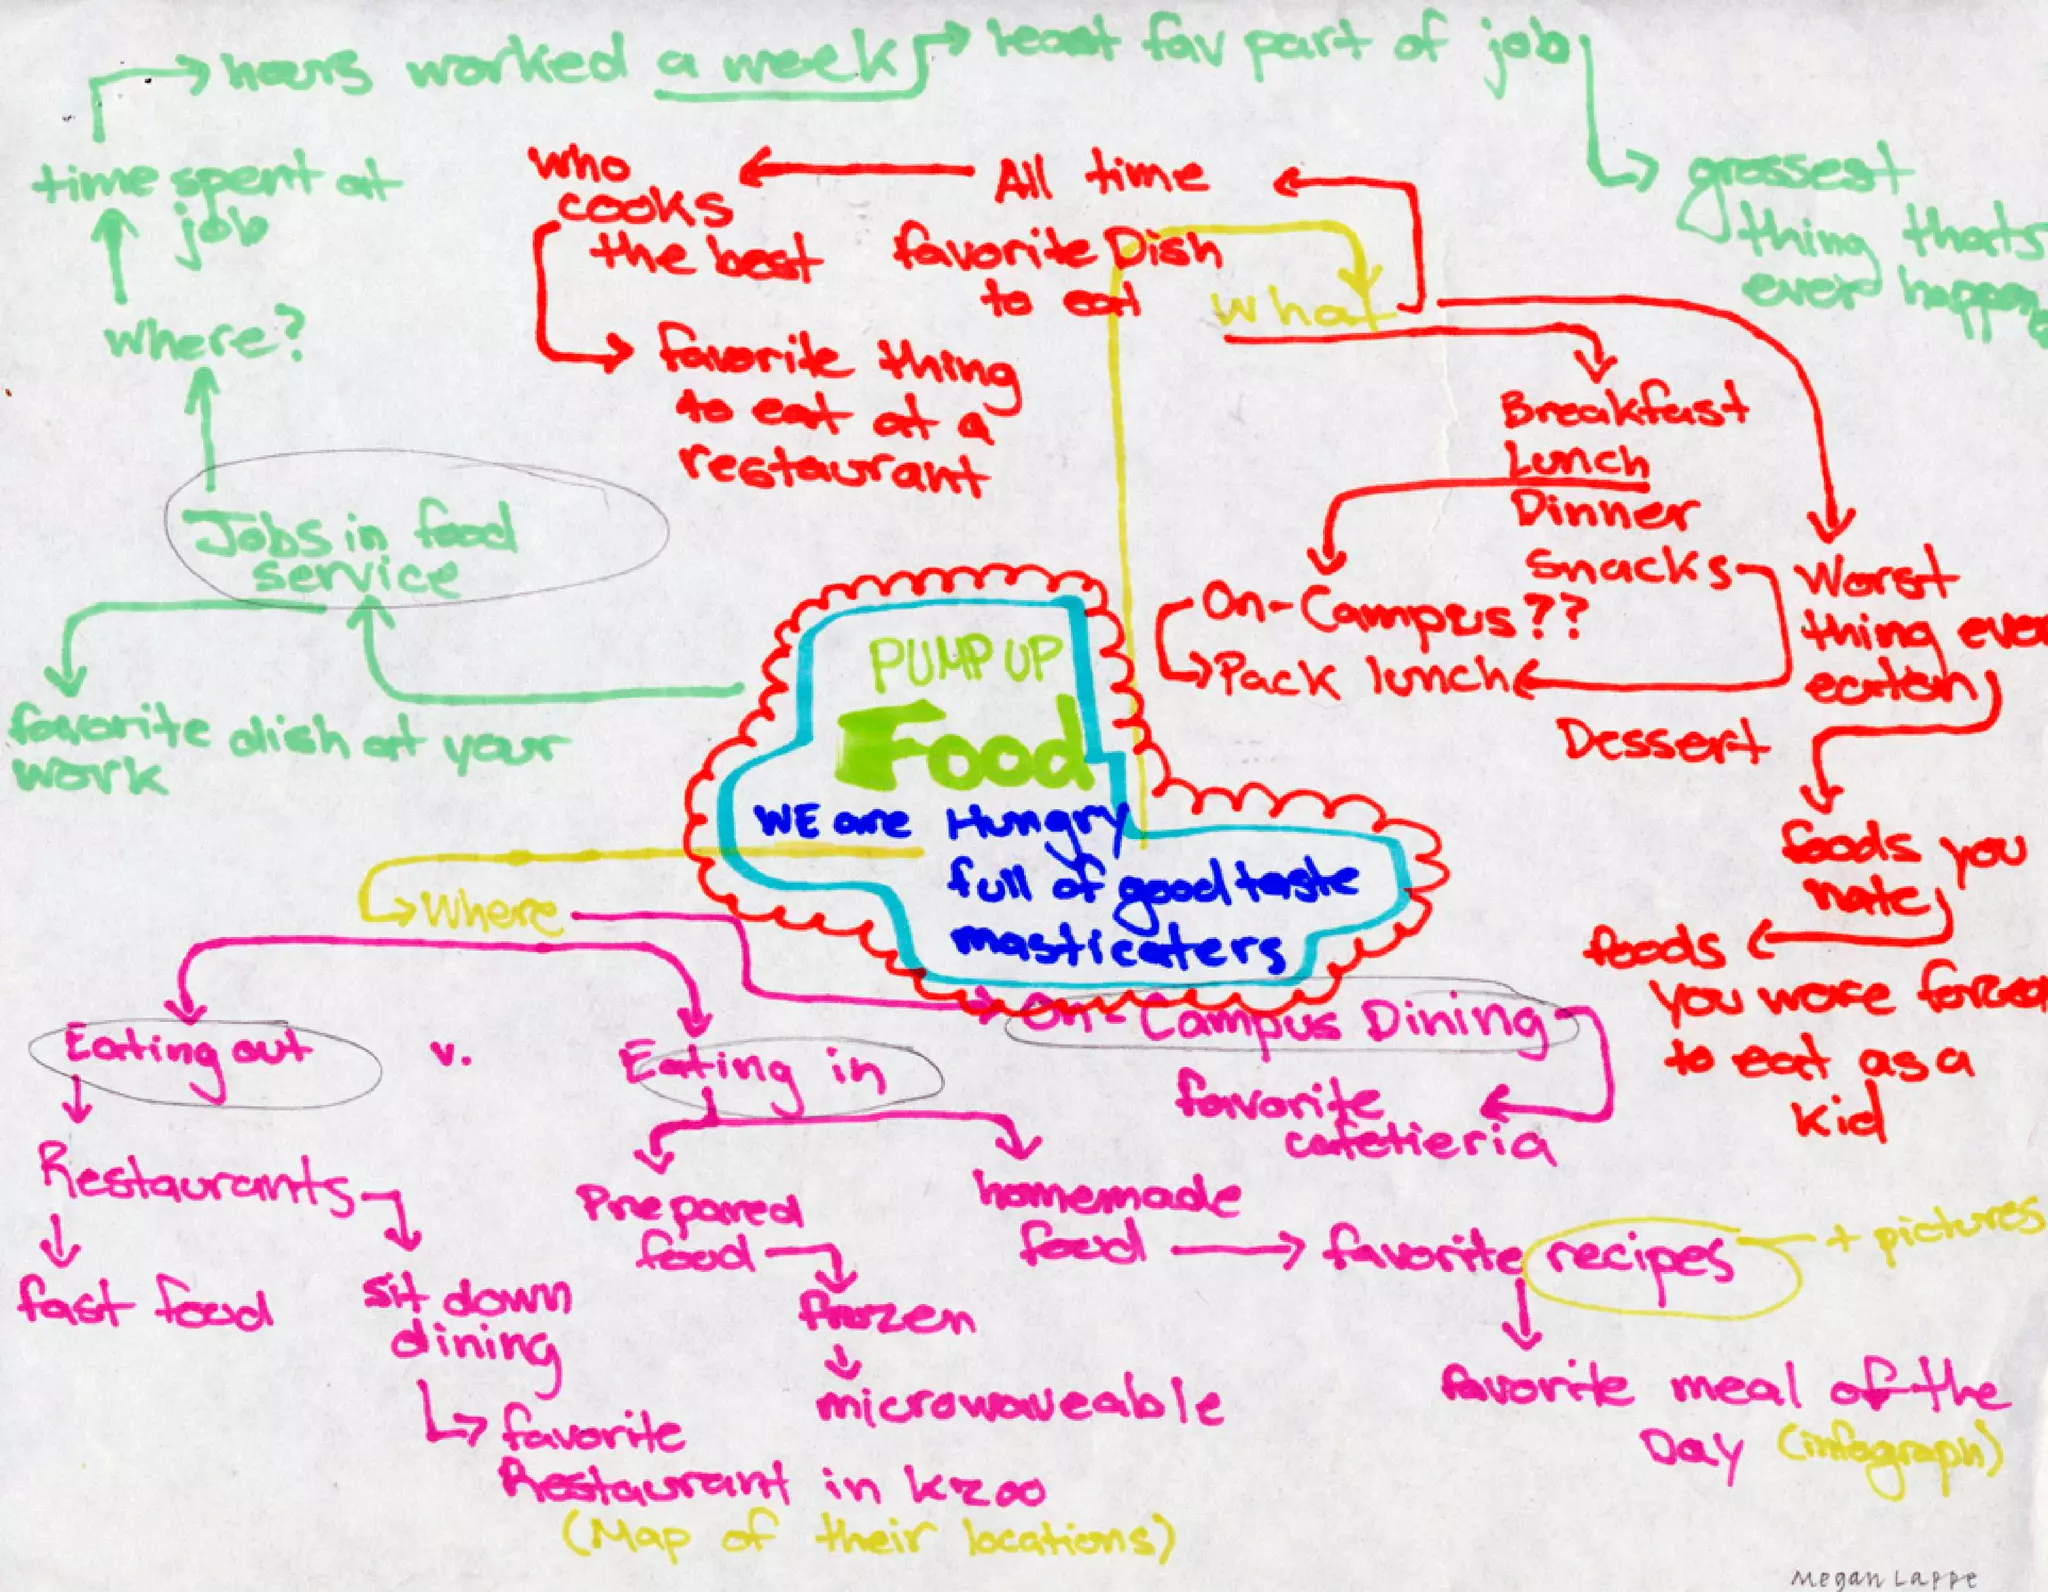 hours worked a week
least fav part of job
grossest
thing thats
ever
time spent at
job
where?
Jobs in food
service
favorite dish at your
work
who
cooks
the best
All time
favorite Dish
to eat
favorite thing
to eat at a
restaurant
what
Breakfast
Lunch
Dinner
Snacks
On-Campus??
Pack lunch
Dessert
Worst
thing ever
eaten
foods you
hate
foods
you were forced
to eat as a
kid
PUMP UP
Food
WE are Hungry
full of good taste
masticaters
where
Eating out
v.
Eating in
On-Campus Dining
favorite
cafetieria
Restaurants
fast food
sit down
dining
favorite
Restaurant in Kzoo
(Map of their locations)
Prepared
food
frozen
microwaveable
homemade
food
favorite recipes
+ pictures
favorite meal of the
Day (infograph)
Megan Lappe